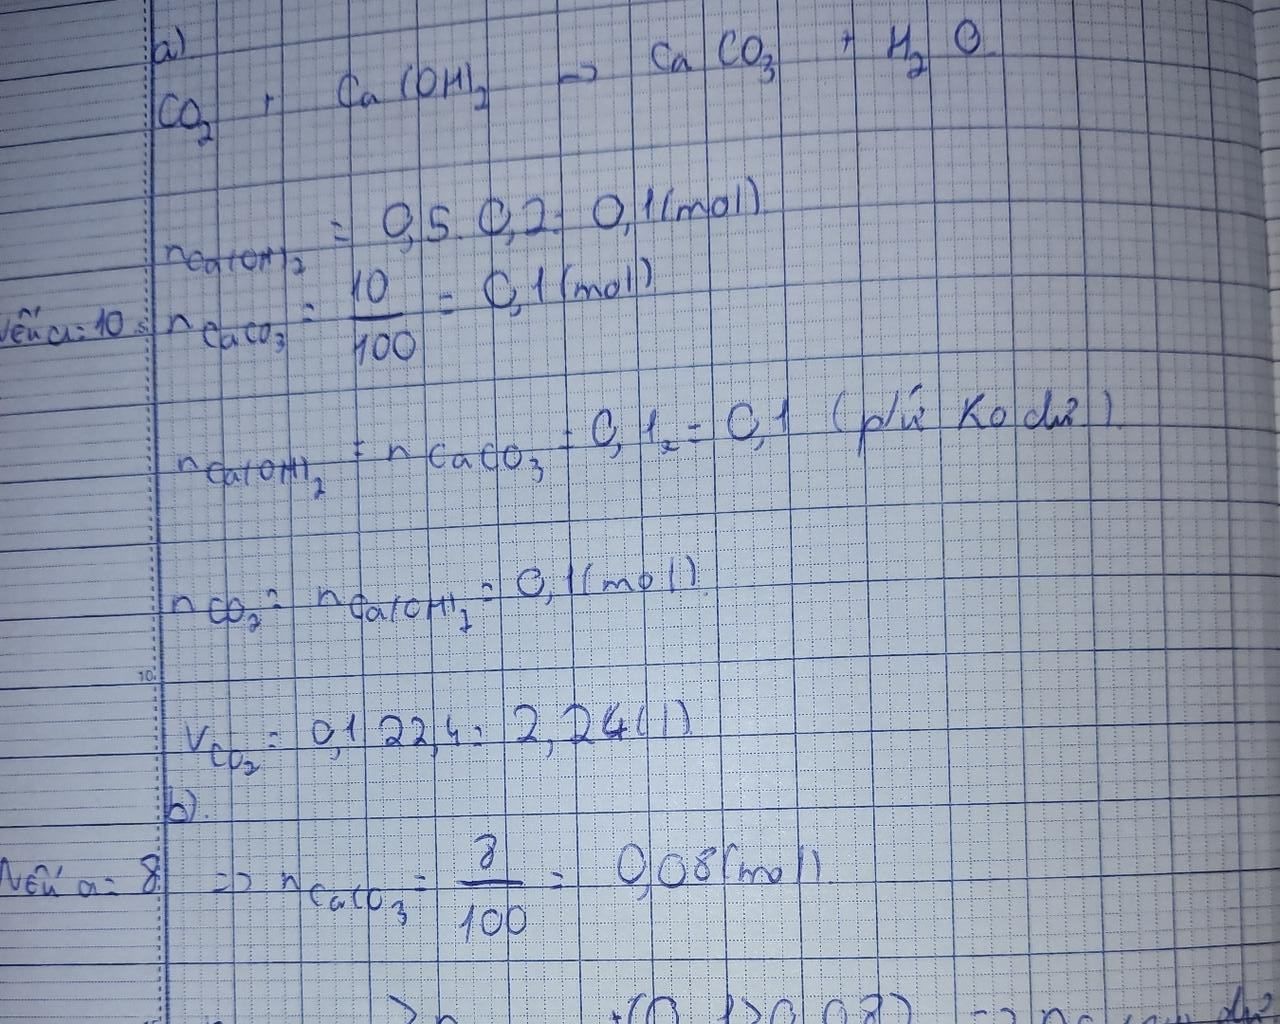 a)
CO₂ + Ca(OH)₂ → CaCO₃ + H₂O
nCa(OH)₂ = 0,5. 0,2 = 0,1(mol)
Nếu a = 10 : nCaCO₃ = 10/100 = 0,1(mol)
nCa(OH)₂ = nCaCO₃ = 0,1 = 0,1 (pứ ko dư)
nCO₂ = nCa(OH)₂ = 0,1(mol)
10
VCO₂ = 0,1 22,4 = 2,24(l)
b).
Nếu a = 8 => nCaCO₃ = 8/100 = 0,08(mol)
> n (0,1>0,08) => n dư